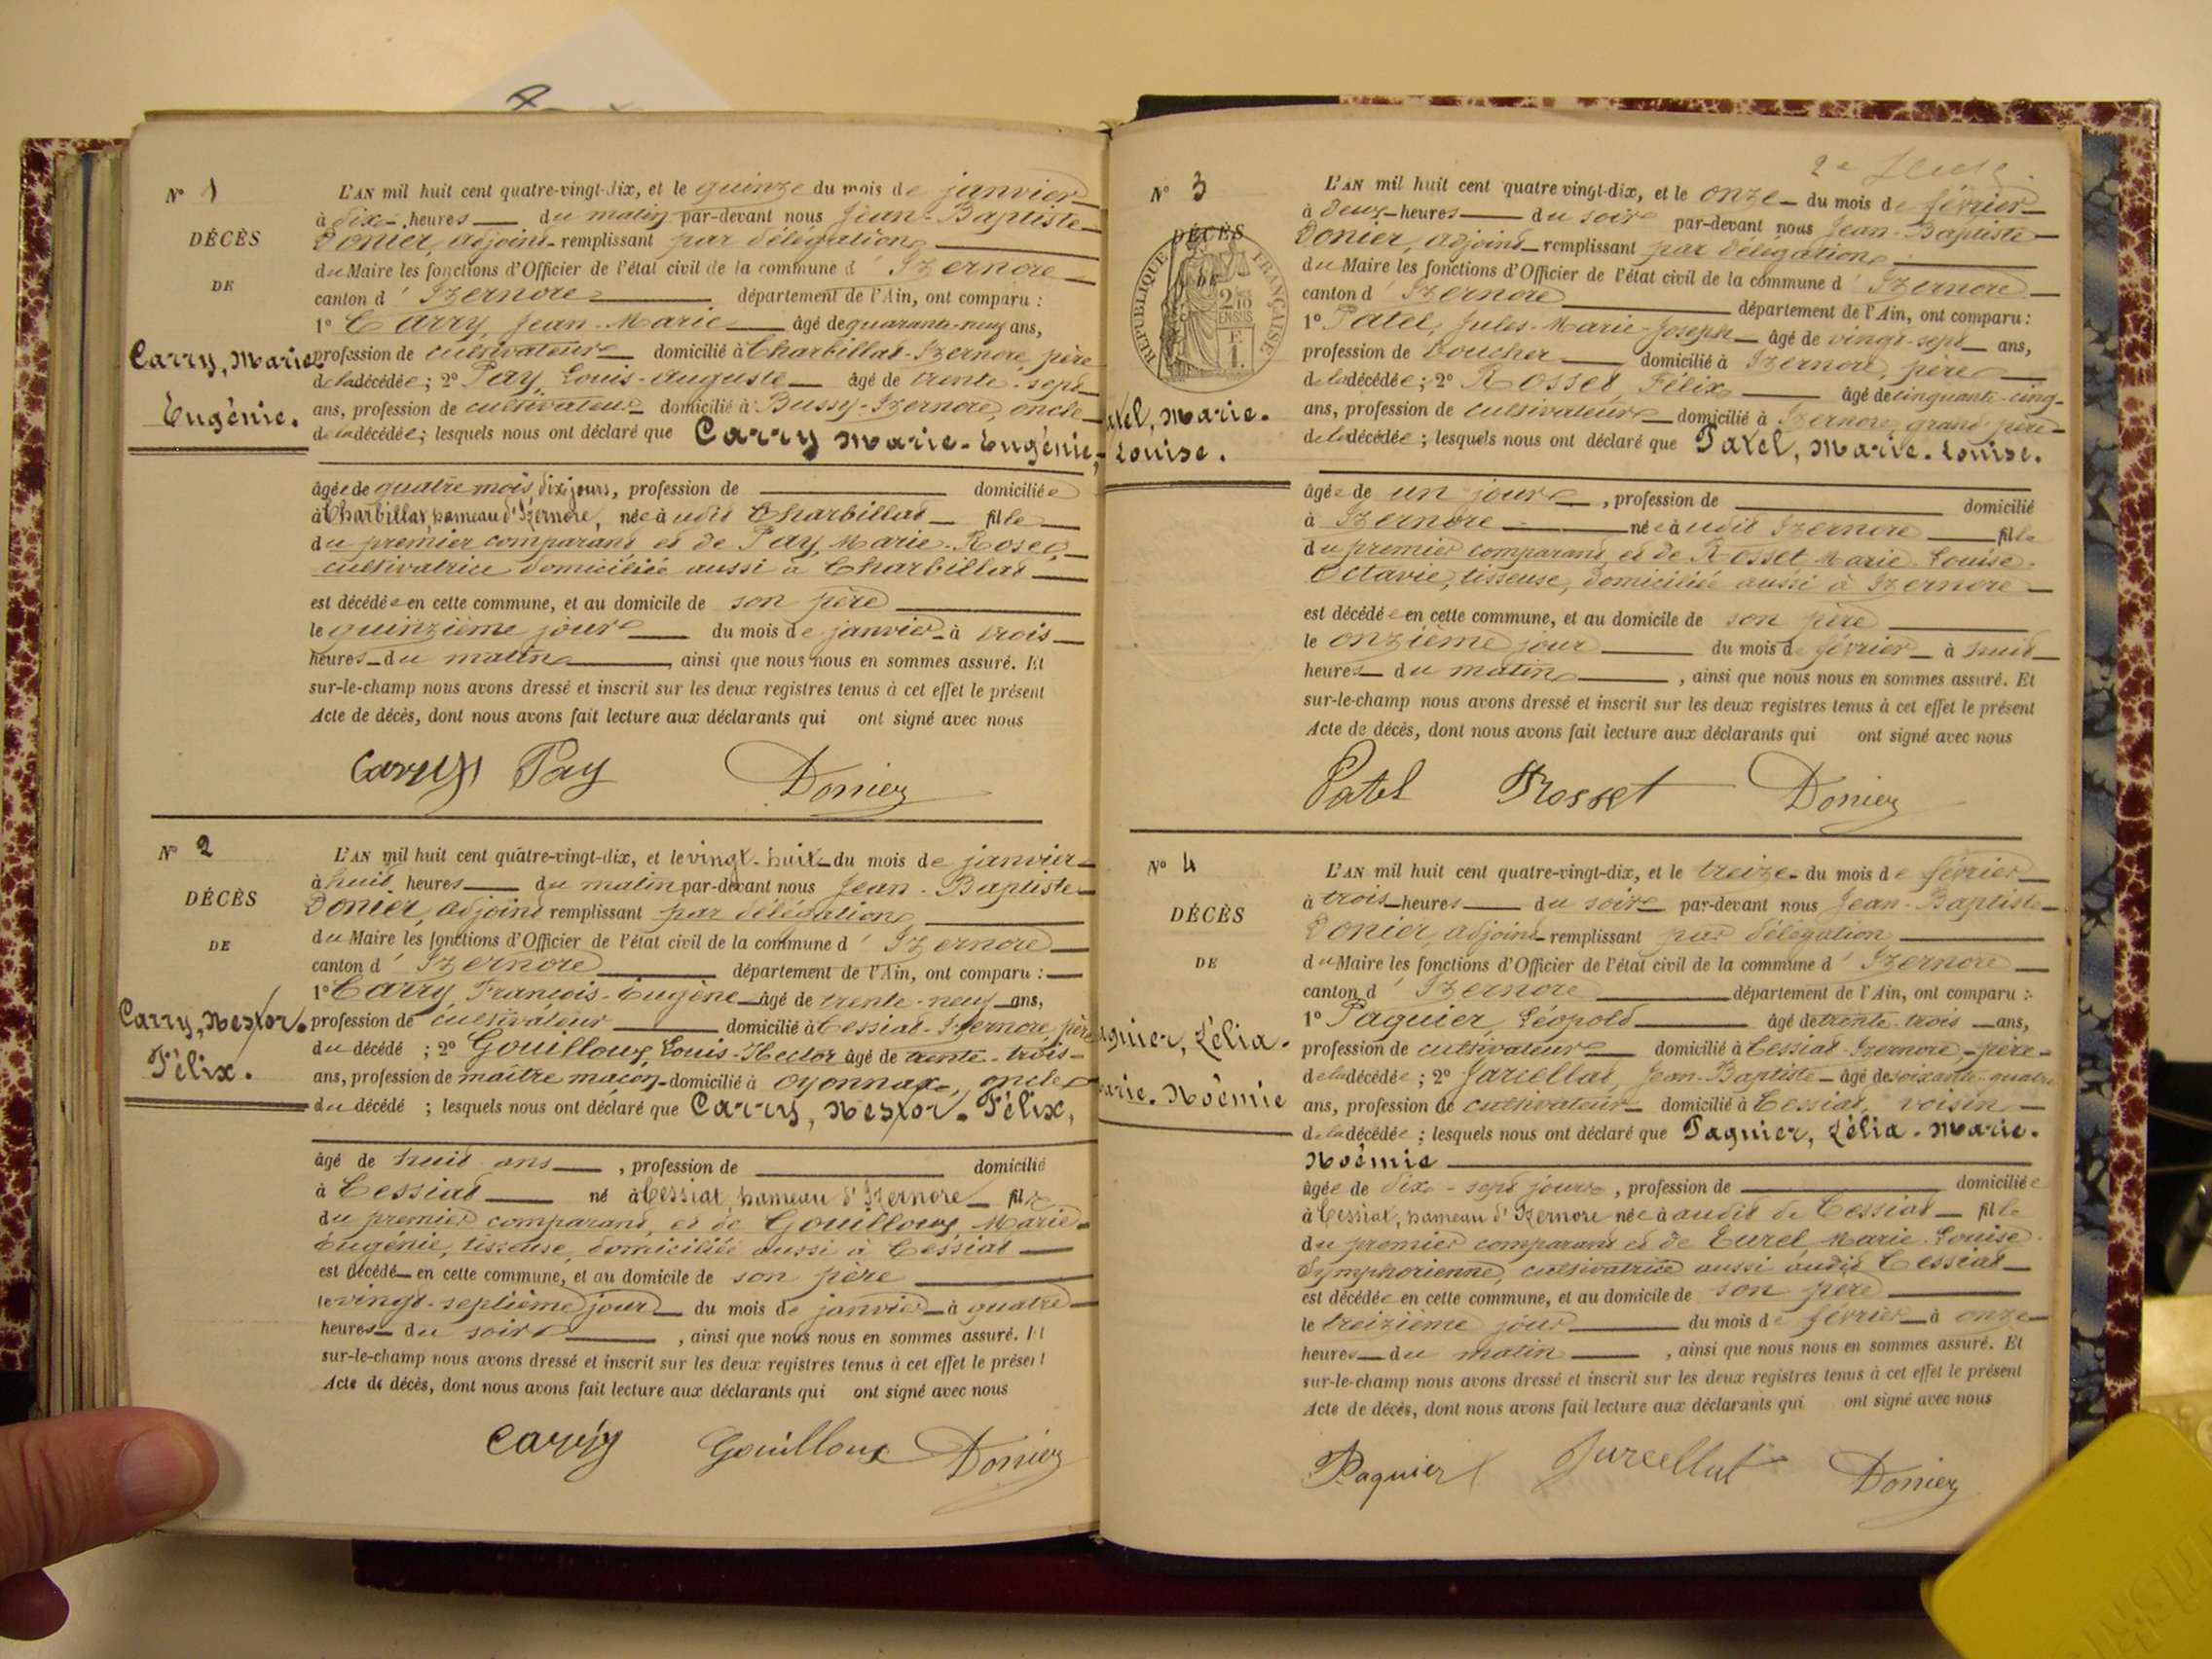 N° 1
DÉCÈS
DE
Carry, Marie
Eugénie.
L'AN mil huit cent quatre-vingt-dix, et le quinze du mois de janvier
à dix heures du matin par-devant nous Jean-Baptiste
Donier, adjoint remplissant par délégation
du Maire les fonctions d'Officier de l'état civil de la commune d' Izernore
canton d' Izernore département de l'Ain, ont comparu :
1° Carry Jean-Marie âgé de quarante-neuf ans,
profession de cultivateur domicilié à Charbillat-Izernore, père
de la décédée ; 2° Pay, Louis-Auguste âgé de trente-sept
ans, profession de cultivateur domicilié à Bussy-Izernore, oncle
de la décédée ; lesquels nous ont déclaré que Carry Marie-Eugénie,
âgée de quatre mois, dix jours, profession de domiciliée
à Charbillat, hameau d'Izernore, née à udit Charbillat fille
du premier comparant et de Pay, Marie-Rose,
cultivatrice domiciliée aussi à Charbillat
est décédée en cette commune, et au domicile de son père
le quinzième jour du mois de janvier à trois
heures du matin, ainsi que nous nous en sommes assuré. Et
sur-le-champ nous avons dressé et inscrit sur les deux registres tenus à cet effet le présent
Acte de décès, dont nous avons fait lecture aux déclarants qui ont signé avec nous
Carry Pay Donier
N° 2
DÉCÈS
DE
Carry, Nestor.
Félix.
L'AN mil huit cent quatre-vingt-dix, et le vingt-huit du mois de janvier
à huit heures du matin par-devant nous Jean-Baptiste
Donier, adjoint remplissant par délégation
du Maire les fonctions d'Officier de l'état civil de la commune d' Izernore
canton d' Izernore département de l'Ain, ont comparu :
1° Carry, François-Eugène âgé de trente-neuf ans,
profession de cultivateur domicilié à Cessiat-Izernore, père
du décédé ; 2° Gouilloux, Louis-Hector âgé de trente-trois
ans, profession de maître maçon domicilié à Oyonnax, oncle
du décédé ; lesquels nous ont déclaré que Carry, Nestor-Félix,
âgé de huit ans, profession de domicilié
à Cessiat né à Cessiat, hameau d'Izernore fils
du premier comparant, et de Gouilloux Marie-
Eugénie, tisseuse, domiciliée aussi à Cessiat
est décédé en cette commune, et au domicile de son père
le vingt-septième jour du mois de janvier à quatre
heures du soir, ainsi que nous nous en sommes assuré. Et
sur-le-champ nous avons dressé et inscrit sur les deux registres tenus à cet effet le présent
Acte de décès, dont nous avons fait lecture aux déclarants qui ont signé avec nous
Carry Gouilloux Donier
N° 3
DÉCÈS
DE
RÉPUBLIQUE FRANÇAISE
atel, Marie.
Louise.
L'AN mil huit cent quatre vingt-dix, et le onze du mois de février
à deux heures du soir par-devant nous Jean-Baptiste
Donier, adjoint remplissant par délégation
du Maire les fonctions d'Officier de l'état civil de la commune d' Izernore
canton d' Izernore département de l'Ain, ont comparu :
1° Patel, Jules-Marie-Joseph âgé de vingt-sept ans,
profession de boucher domicilié à Izernore, père
de la décédée ; 2° Rosset, Félix âgé de cinquante-cinq
ans, profession de cultivateur domicilié à Izernore, grand'père
de la décédée ; lesquels nous ont déclaré que Patel, Marie-Louise.
âgée de un jour, profession de domicilié
à Izernore née à udit Izernore fille
du premier comparant, et de Rosset Marie-Louise-
Octavie, tisseuse, domiciliée aussi à Izernore
est décédée en cette commune, et au domicile de son père
le onzième jour du mois de février à huit
heures du matin, ainsi que nous nous en sommes assuré. Et
sur-le-champ nous avons dressé et inscrit sur les deux registres tenus à cet effet le présent
Acte de décès, dont nous avons fait lecture aux déclarants qui ont signé avec nous
Patel Rosset Donier
N° 4
DÉCÈS
DE
aguier, Zélia.
arie. Noémie
L'AN mil huit cent quatre-vingt-dix, et le treize du mois de février
à trois heures du soir par-devant nous Jean-Baptiste
Donier, adjoint remplissant par délégation
du Maire les fonctions d'Officier de l'état civil de la commune d' Izernore
canton d' Izernore département de l'Ain, ont comparu :
1° Paquier, Léopold âgé de trente-trois ans,
profession de cultivateur domicilié à Cessiat-Izernore, père
de la décédée ; 2° Jarcellat, Jean-Baptiste âgé de soixante-quatre
ans, profession de cultivateur domicilié à Cessiat, voisin
de la décédée ; lesquels nous ont déclaré que Paguier, Zélia-Marie-
Noémie
âgée de dix-sept jours, profession de domiciliée
à Cessiat, hameau d'Izernore née à audit de Cessiat fille
du premier comparant et de Eurel Marie-Louise
Symphorienne, cultivatrice aussi audit Cessiat
est décédée en cette commune, et au domicile de son père
le treizième jour du mois de février à onze
heures du matin, ainsi que nous nous en sommes assuré. Et
sur-le-champ nous avons dressé et inscrit sur les deux registres tenus à cet effet le présent
Acte de décès, dont nous avons fait lecture aux déclarants qui ont signé avec nous
Paquier Jurcellat Donier